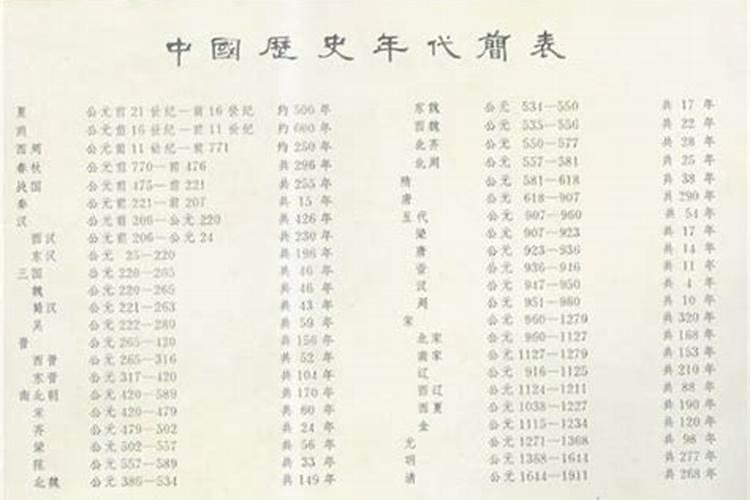 中國歷史年代簡表
夏 公元前21世纪—前16世纪 约500年
商 公元前16世纪—前11世纪 约600年
西周 公元前11世纪—前771 约250年
春秋 公元前770—前476 共296年
战国 公元前475—前221 共255年
秦 公元前221—前207 共15年
汉 公元前206—公元220 共426年
西汉 公元前206—公元24 共230年
东汉 公元25—220 共196年
三国 公元220—265 共46年
魏 公元220—265 共46年
蜀汉 公元221—263 共43年
吴 公元222—280 共59年
晋 公元265—420 共156年
西晋 公元265—316 共52年
东晋 公元317—420 共104年
南北朝 公元420—589 共170年
宋 公元420—479 共60年
齐 公元479—502 共24年
梁 公元502—557 共56年
陈 公元557—589 共33年
北魏 公元386—534 共149年
东魏 公元534—550 共17年
西魏 公元535—556 共22年
北齐 公元550—577 共28年
北周 公元557—581 共25年
隋 公元581—618 共38年
唐 公元618—907 共290年
五代 公元907—960 共54年
梁 公元907—923 共17年
唐 公元923—936 共14年
晋 公元936—946 共11年
汉 公元947—950 共4年
周 公元951—960 共10年
宋 公元960—1279 共320年
北宋 公元960—1127 共168年
南宋 公元1127—1279 共153年
辽 公元916—1125 共210年
西辽 公元1124—1211 共88年
西夏 公元1038—1227 共190年
金 公元1115—1234 共120年
元 公元1271—1368 共98年
明 公元1368—1644 共277年
清 公元1644—1911 共268年